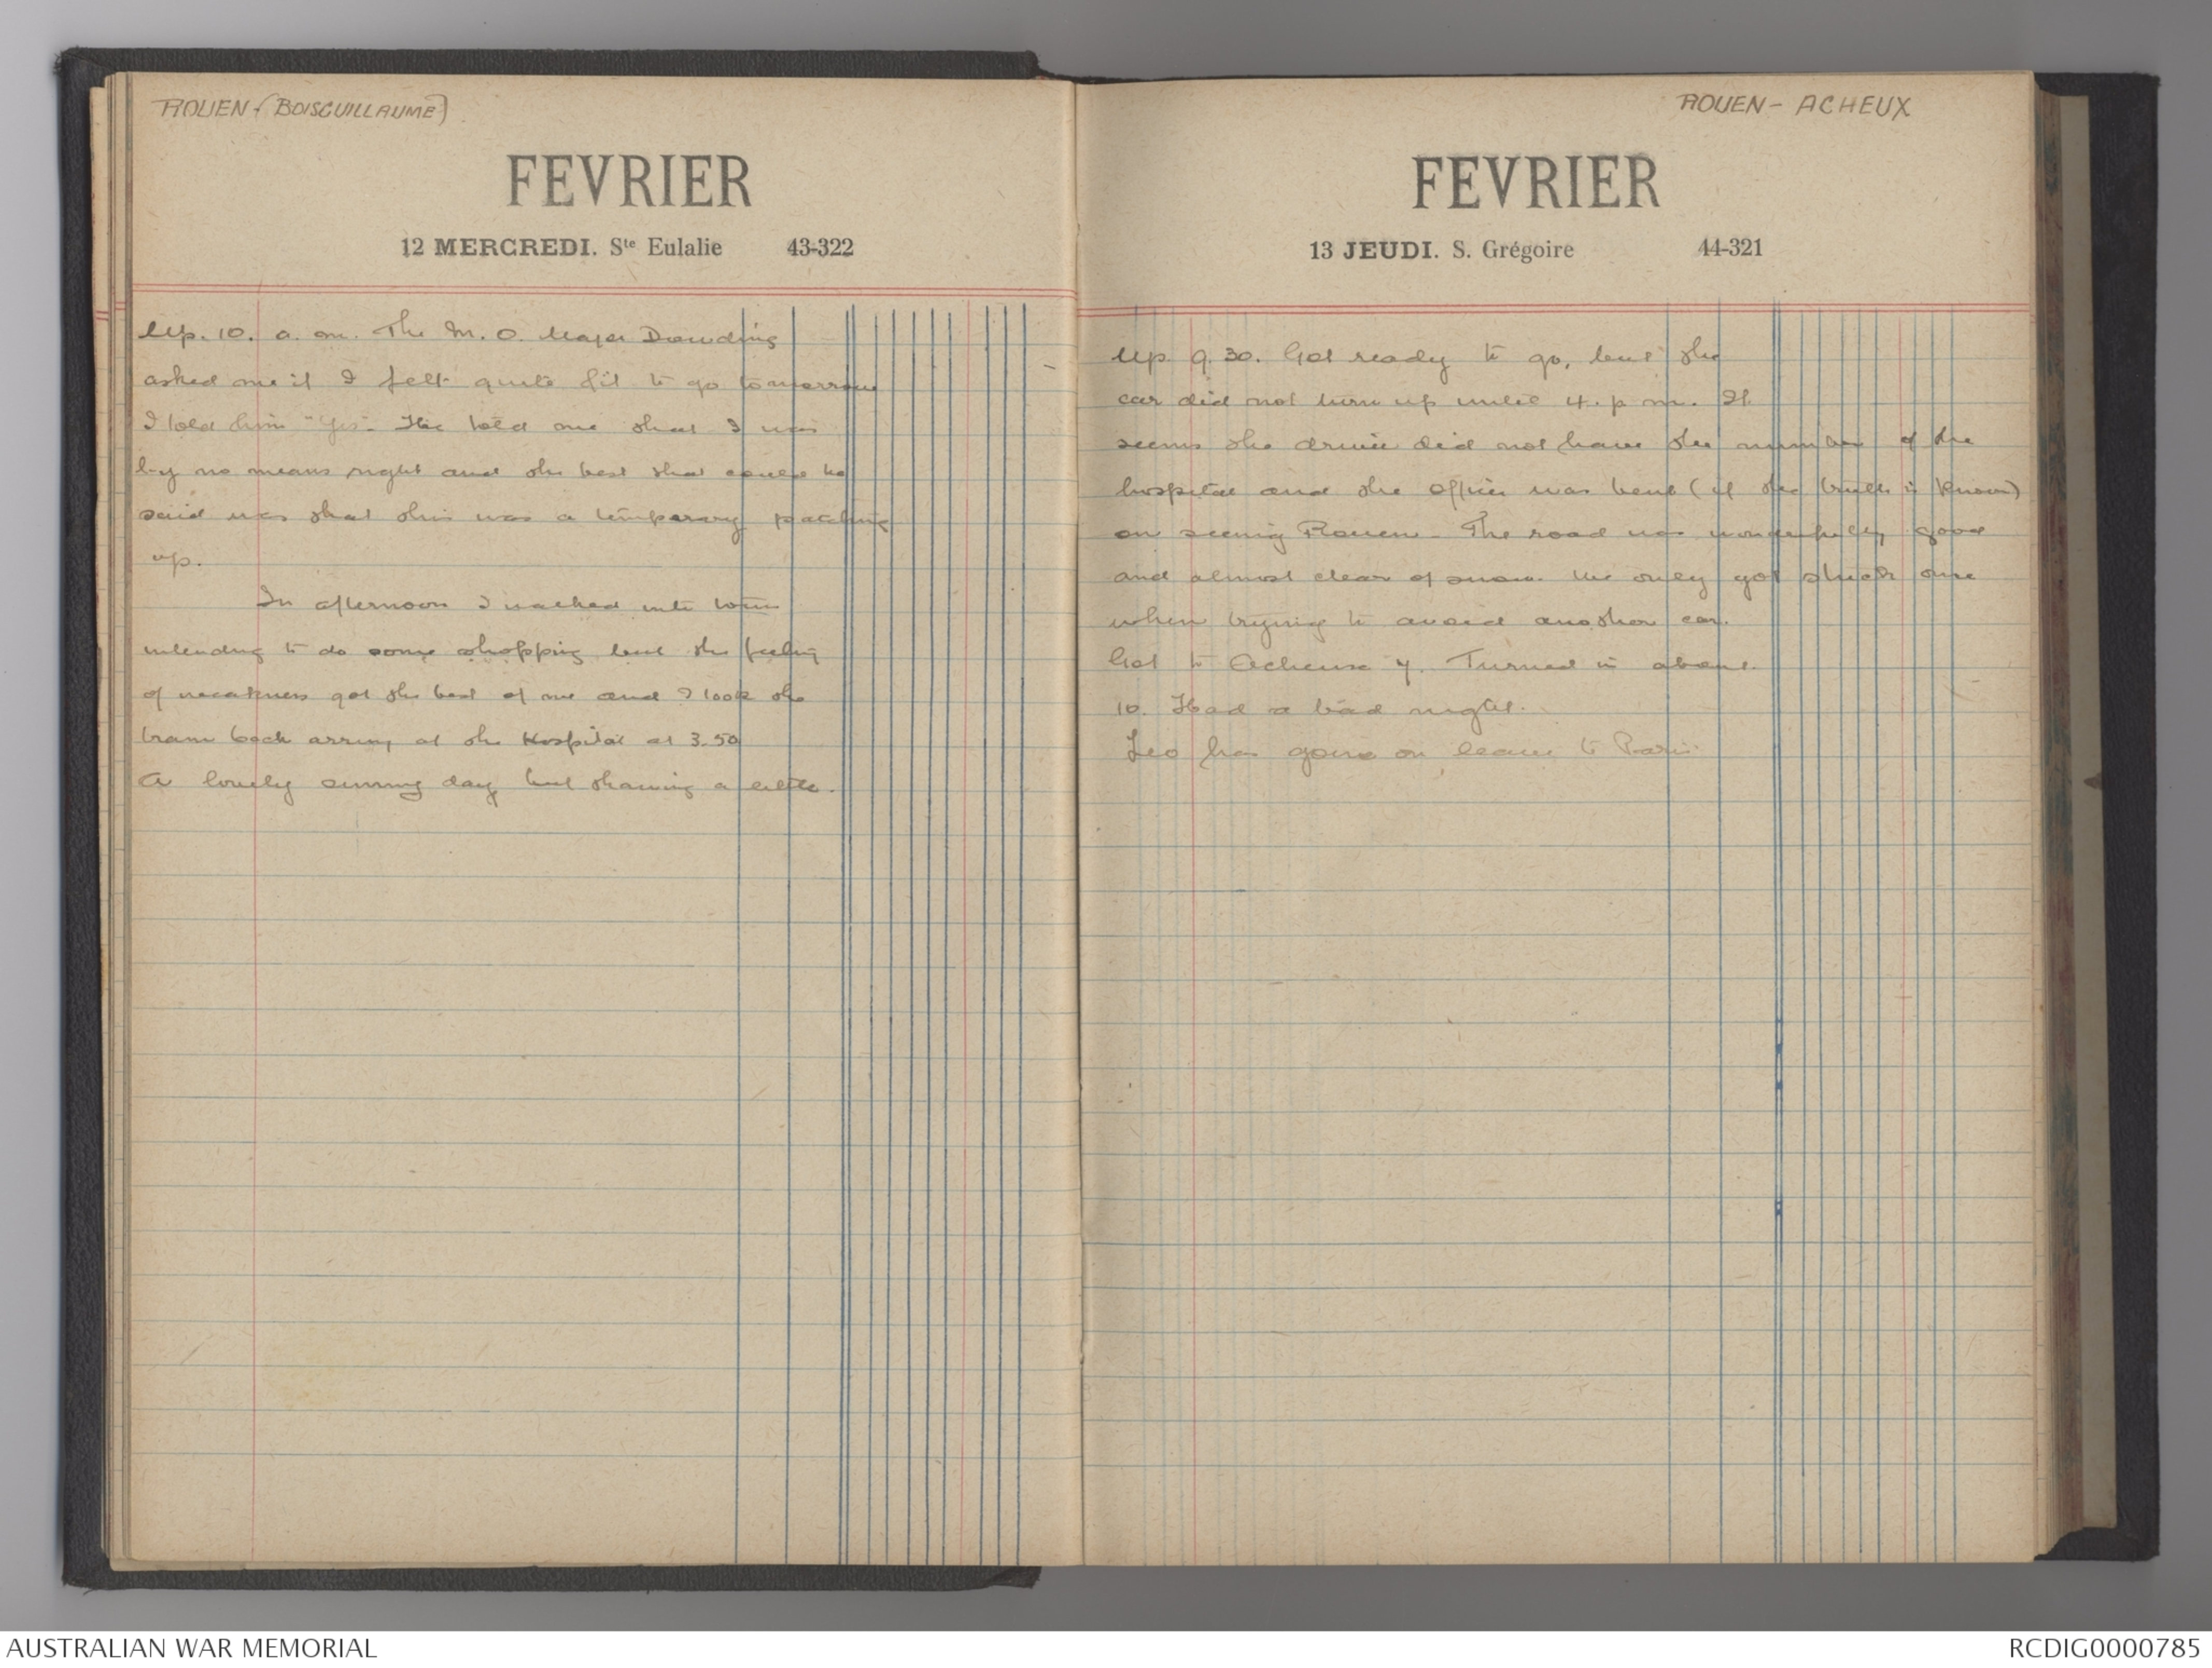 ROUEN - (BOISGUILLAUME)
FEVRIER
12 MERCREDI. Ste Eulalie 43-322
Up. 10. a. m. The M. O. Major Dowding
asked me if I felt quite fit to go tomorrow
I told him "Yes". He told me that I was
by no means right and the best that could be
said was that this was a temporary patching
up.
In afternoon I walked into town
intending to do some shopping but the feeling
of weakness got the best of me and I took the
tram back arriving at the Hospital at 3.50
A lovely sunny day but thawing a little.
ROUEN - ACHEUX
FEVRIER
13 JEUDI. S. Grégoire 44-321
Up 9.30. Got ready to go, but the
car did not turn up until 4. p m. It
seems the driver did not have the number of the
hospital and the officer was bent (if the truth is known)
on seeing Rouen - The road was wonderfully good
and almost clear of snow. We only got stuck once
when trying to avoid another car.
Got to Acheux 7. Turned in about
10. Had a bad night.
Leo has gone on leave to Paris.
AUSTRALIAN WAR MEMORIAL
RCDIG0000785